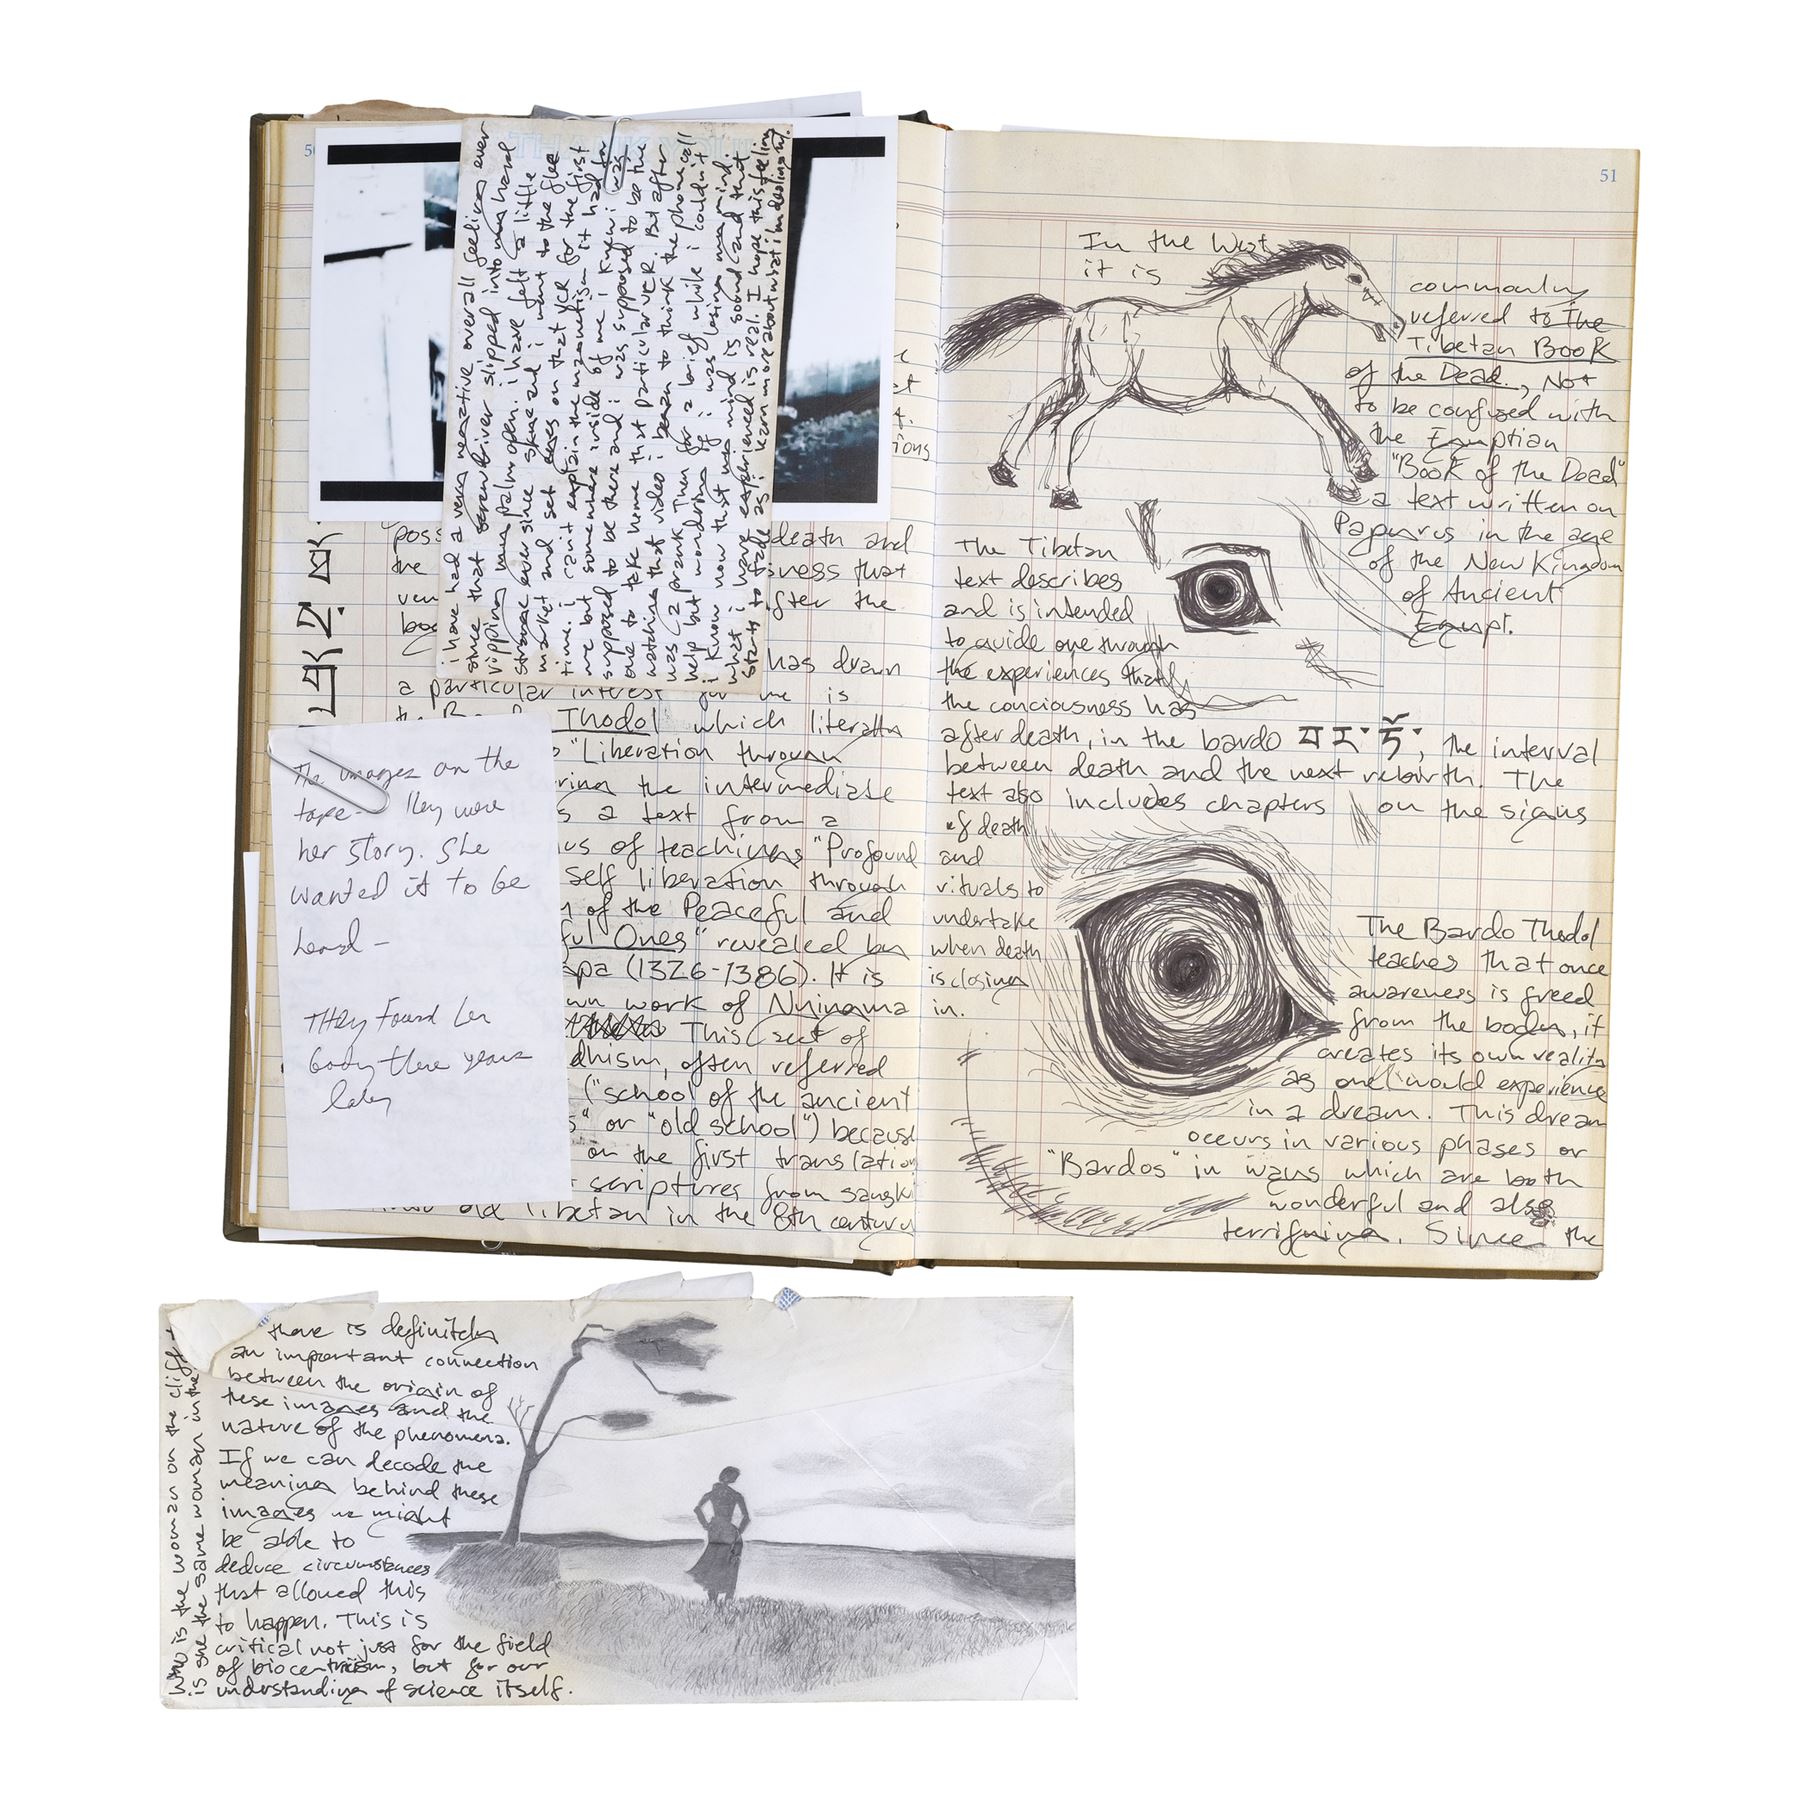 50
i have had a very negative overall feeling ever
since that screwdriver slipped into my hand
ripping my palm open. i have felt a little
strange ever since
market and set eyes on that VCR for the first
time. i can't explain the magnetism it had
me but somewhere inside of me i knew i was
supposed to be there and i was supposed to be the
one to take home that particular VCR. But after
watching that video i began to think the phone call
was a prank. Then for a brief while i couldn't
help but wondering if i was losing my mind.
i know now that my mind is sound and that
what i have experienced is real. I hope this feeling
starts to fade as i learn more about what i'm dealing w/.
poss
death and
the
sness that
ven
fter the
has drawn
a particular interest for me is
Thodol which literally
"Liberation through
ring the intermediate
s a text from a
us of teachings "Profound
self liberation through
of the Peaceful and
ful Ones" revealed by
pa (1326-1386). It is
wn work of Nyingma
This sect of
dhism, often referred
("school of the ancient
s" or "old school") because
on the first translation
scriptures from sanskri
old Tibetan in the 8th century
The images on the
tape - They were
her story. She
wanted it to be
heard -
They Found her
body three years
later
51
In the West
it is
commonly
referred to The
Tibetan Book
of the Dead., Not
to be confused with
the Egyptian
"Book of the Dead"
a text written on
Papyrus in the age
of the New Kingdom
of Ancient
Egypt.
The Tibetan
text describes
and is intended
to guide one through
the experiences that
the conciousness has
after death, in the bardo བར་དོ་, the interval
between death and the next rebirth. The
text also includes chapters on the signs
of death
and
rituals to
undertake
when death
is closing
in.
The Bardo Thodol
teaches that once
awareness is freed
from the body, it
creates its own reality
as one would experience
in a dream. This dream
occurs in various phases or
"Bardos" in ways which are both
wonderful and also
terrifying. Since the
who is the woman on the cliff
is she the same woman in the
there is definitely
an important connection
between the origin of
these images and the
nature of the phenomena.
If we can decode the
meaning behind these
images we might
be able to
deduce circumstances
that allowed this
to happen. This is
critical not just for the field
of biocentrism, but for our
understanding of science itself.